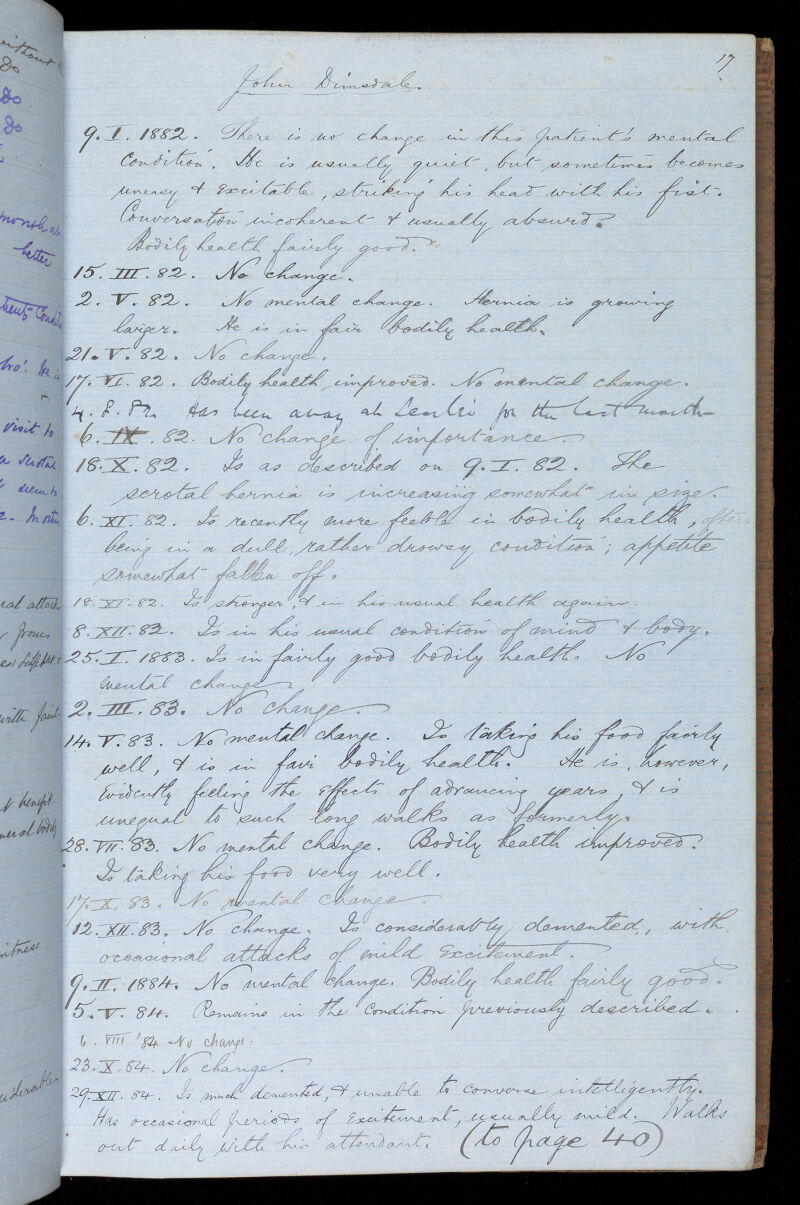 17
John Dimsdale.
9. I. 1882. There is no change in this patient's mental
condition. He is usually quiet, but sometimes becomes
uneasy & excitable, striking his head with his fist.
Conversation incoherent & usually absurd.
Bodily health fairly good.
15. III. 82. No change.
2. V. 82. No mental change. Hernia is growing
larger. He is in fair bodily health.
21. V. 82. No change.
17. VI. 82. Bodily health improved. No mental change.
4. 8. 82. Has been away at for the last month
6. IX. 82. No change of importance.
18. X. 82. Is as described on 9. I. 82. The
scrotal hernia is increasing somewhat in size.
6. XI. 82. Is recently more feeble in bodily health, often
being in a dull, rather drowsy condition; appetite
somewhat fallen off.
18. XI. 82. Is stronger, & in his usual health again.
8. XII. 82. Is in his usual condition of mind & body.
25. I. 1883. Is in fairly good bodily health. No
mental change.
2. III. 83. No change.
14. V. 83. No mental change. Is taking his food fairly
well, & is in fair bodily health. He is, however,
evidently feeling the effects of advancing years, & is
unequal to such long walks as formerly.
28. VII. 83. No mental change. Bodily health improved.
Is taking his food very well.
17. X. 83. No mental change.
12. XII. 83. No change. Is considerably demented, with
occasional attacks of mild excitement.
9. II. 1884. No mental change. Bodily health fairly good.
5. V. 84. Remains in the condition previously described.
6. VIII '84 No change.
23. X. 84. No change.
29. XII. 84. Is much demented, & unable to converse intelligently.
Has occasional periods of excitement, usually mild. Walks
out daily with his attendant. (to page 40)